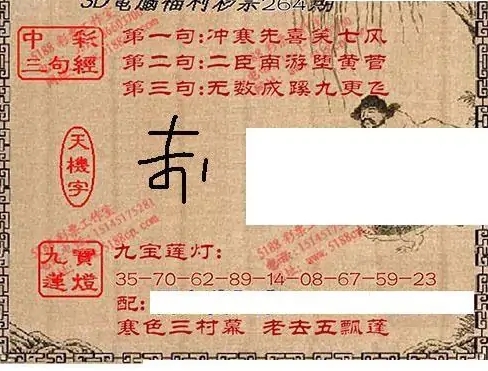 3D电脑福利彩票264期
中彩
三句經
第一句:冲寒先喜笑七风
第二句:二臣南游堕黄营
第三句:无数成蹊九更飞
天機字
九寶
蓮燈
九宝莲灯:
35-70-62-89-14-08-67-59-23
配:
寒色三村幕 老去五瓢蓬
5188 彩票工作室
电话: 15145175281
www.5188cp.com